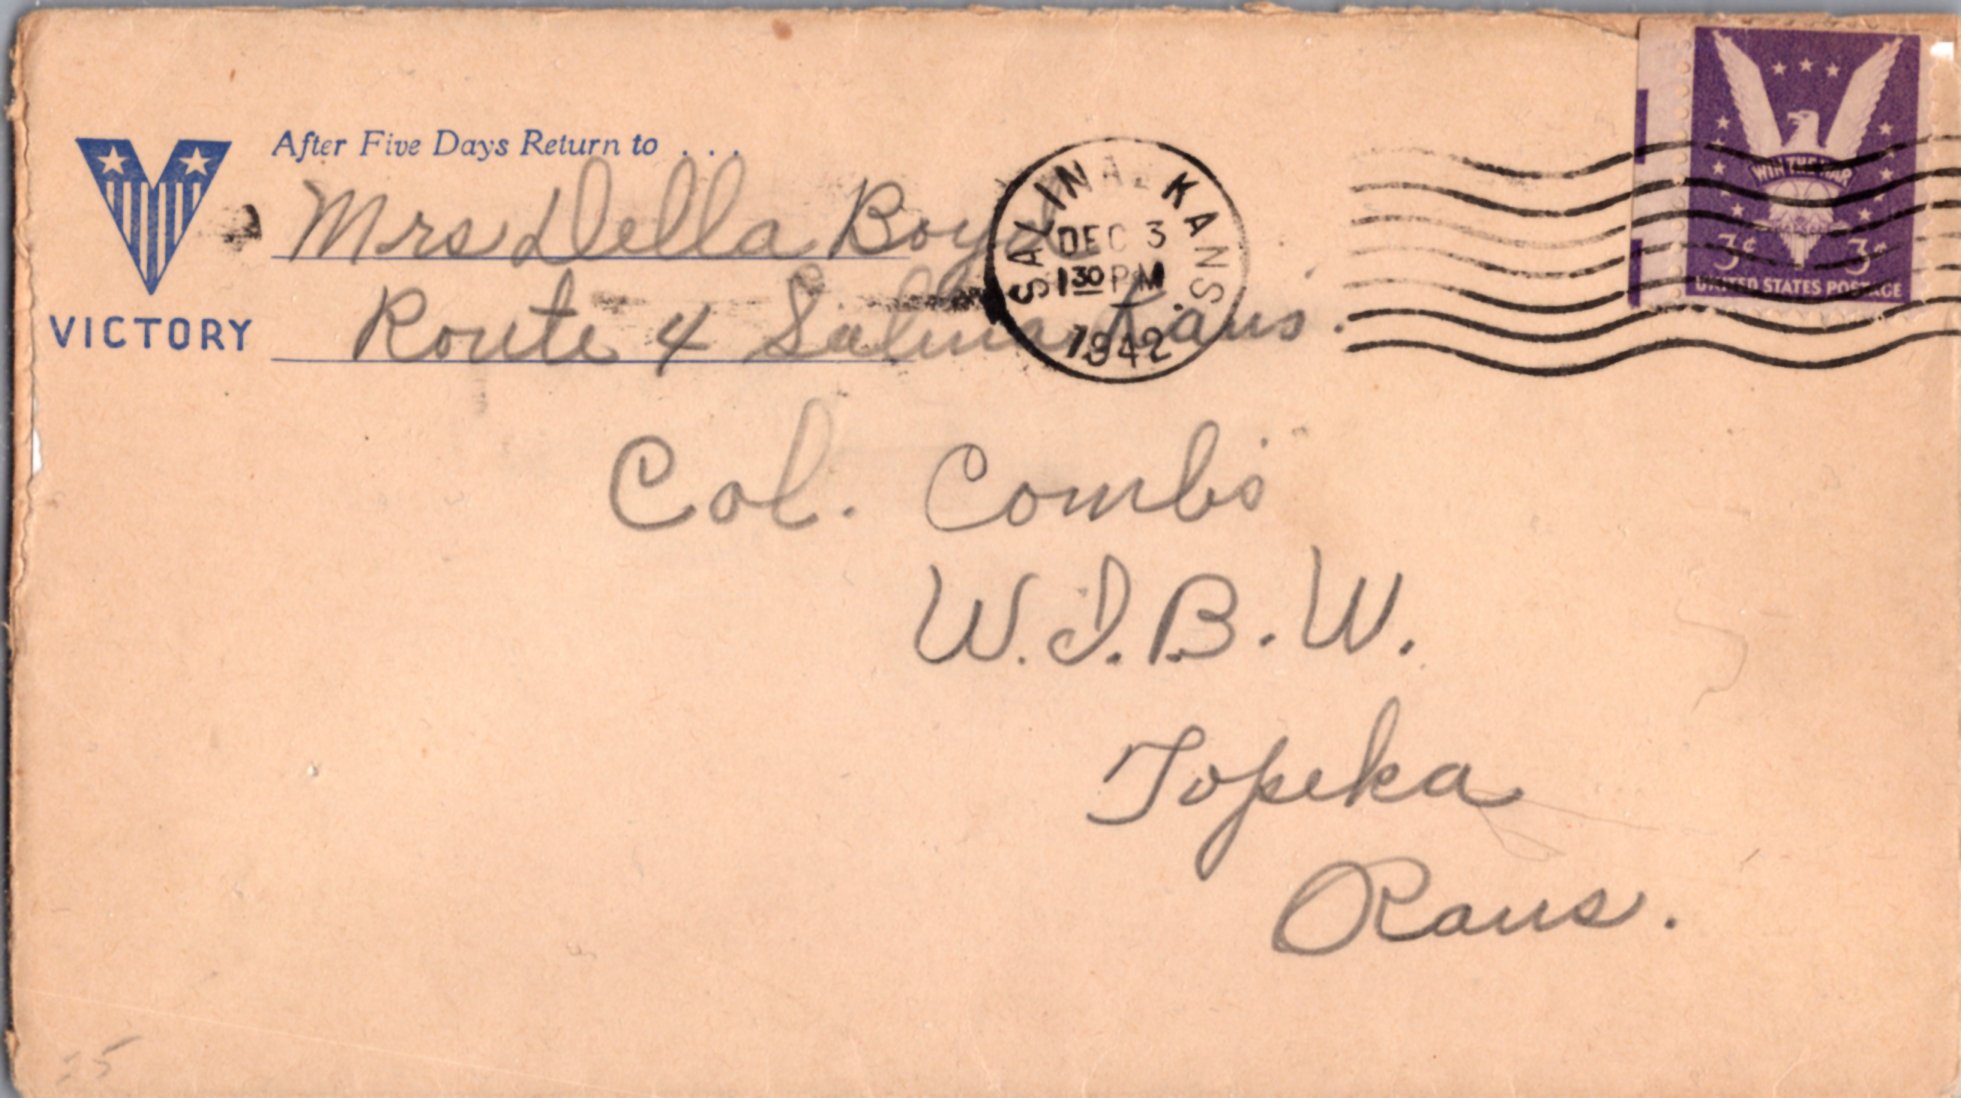 After Five Days Return to . . .
Mrs Della Boyd
Route 4 Salina Kans.
VICTORY
SALINA, KANS.
DEC 3
1 30 PM
1942
WIN THE WAR
3¢ 3¢
UNITED STATES POSTAGE
Col. Combs
W.I.B.W.
Topeka
Kans.
25